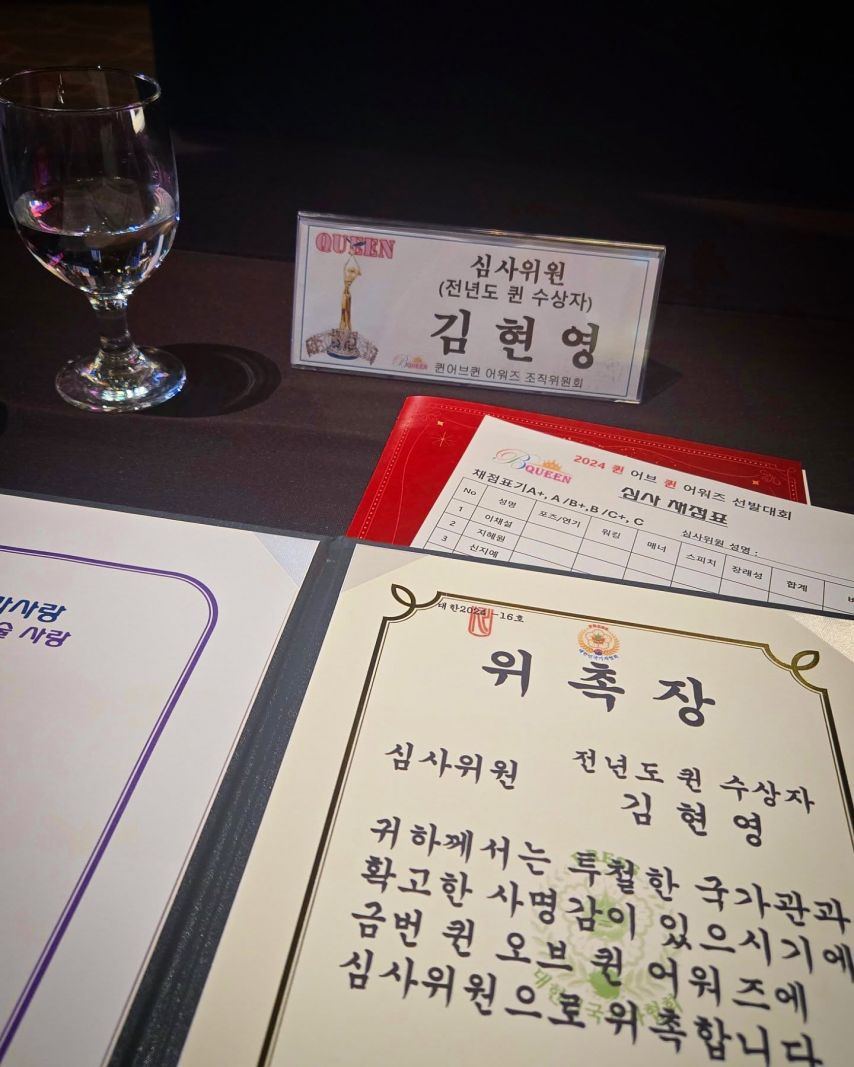 QUEEN
심사위원
(전년도 퀸 수상자)
김 현 영
BQUEEN
퀸어브퀸 어워즈 조직위원회
BQUEEN
2024 퀸 어브 퀸 어워즈 선발대회
심사 채점표
채점표기A+, A /B+,B /C+, C
심사위원 성명 :
No 성명 포즈/연기 워킹 매너 스피치 장래성 합계
1 이채설
2 지혜원
3 신지예
사랑
술 사랑
태한2024-16호
위 촉 장
심사위원 전년도 퀸 수상자
김 현 영
귀하께서는 투철한 국가관과
확고한 사명감이 있으시기에
금번 퀸 오브 퀸 어워즈에
심사위원으로 위촉합니다